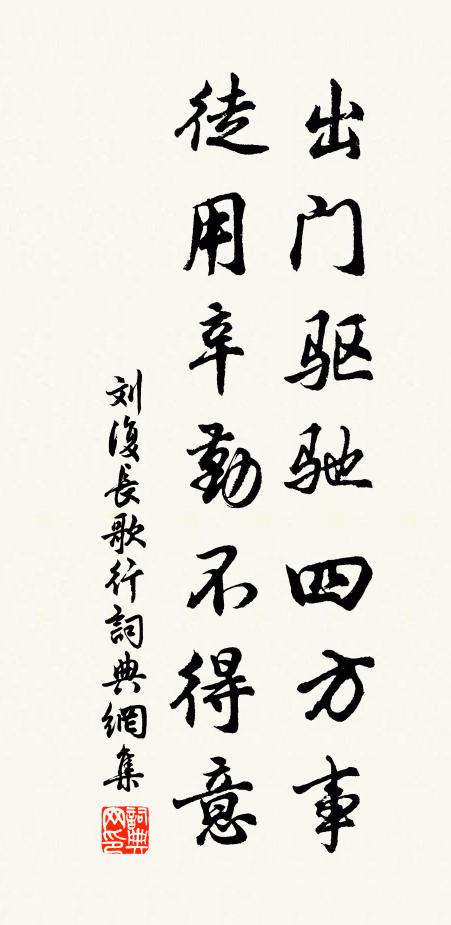 出门驱驰四方事
徒用辛勤不得意
刘復長歌行詞典網集
詞典网印